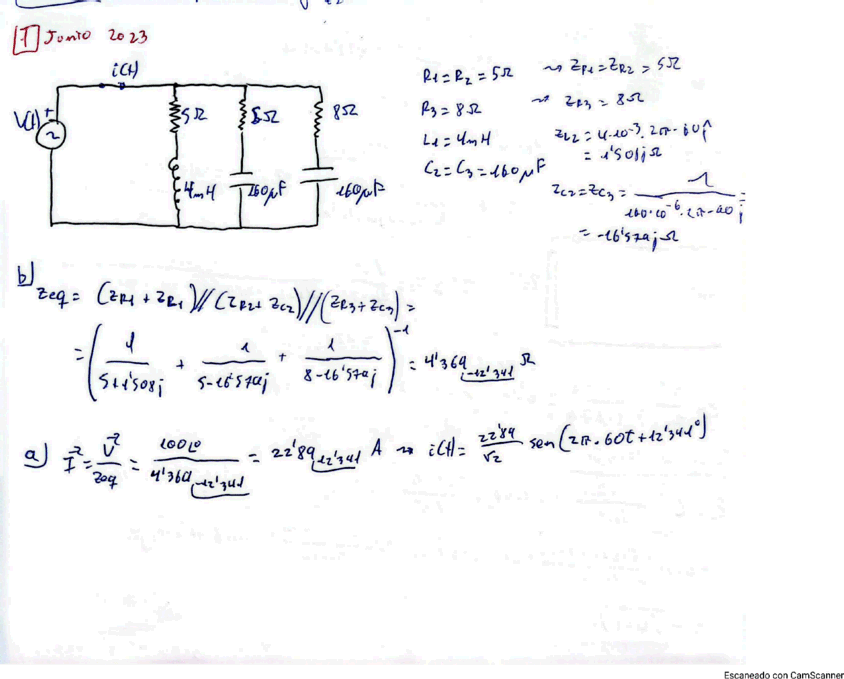 1 Junio 2023
i(t)
V(t) + ~
5Ω
5Ω
8Ω
4mH
160μF
160μF
R1 = R2 = 5Ω ⇝ ZR1 = ZR2 = 5Ω
R3 = 8Ω ⇝ ZR3 = 8Ω
L1 = 4mH
ZL2 = 4·10^-3 · 2π · 60j
= 1'508jΩ
C2 = C3 = 160μF
ZC2 = ZC3 = 1 / (160·10^-6 · 2π · 60j) =
= -16'579jΩ
b) Zeq = (ZR1 + ZR1) // (ZR2 + ZC2) // (ZR3 + ZC3) =
= (1/(5+1'508j) + 1/(5-16'579j) + 1/(8-16'579j))^-1 = 4'369 ∠-12'341 Ω
a) I = V/Zeq = 100∠0 / 4'369∠-12'341 = 22'89∠12'341 A ⇝ i(t) = 22'89/√2 sen(2π·60t + 12'341°)
Escaneado con CamScanner